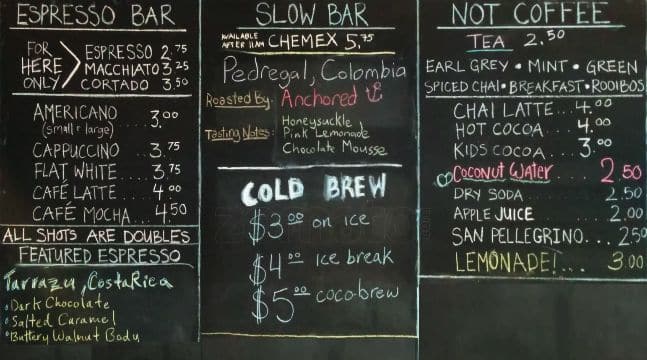 ESPRESSO BAR
FOR HERE ONLY
ESPRESSO 2.75
MACCHIATO 3.25
CORTADO 3.50
AMERICANO 3.00
(small & large)
CAPPUCCINO ... 3.75
FLAT WHITE .... 3.75
CAFÉ LATTE .... 4.00
CAFÉ MOCHA .... 4.50
ALL SHOTS ARE DOUBLES
FEATURED ESPRESSO
Tarrazu, Costa Rica
Dark Chocolate
Salted Caramel
Buttery Walnut Body
SLOW BAR
AVAILABLE AFTER 11AM CHEMEX 5.75
Pedregal, Colombia
Roasted By: Anchored
Tasting Notes: Honeysuckle
Pink Lemonade
Chocolate Mousse
COLD BREW
$3.00 on ice
$4.00 ice break
$5.00 coco-brew
NOT COFFEE
TEA 2.50
EARL GREY • MINT • GREEN
SPICED CHAI • BREAKFAST • ROOIBOS
CHAI LATTE ... 4.00
HOT COCOA ... 4.00
KIDS COCOA ... 3.00
Coconut Water ... 2.50
DRY SODA ... 2.50
APPLE JUICE ... 2.00
SAN PELLEGRINO ... 2.50
LEMONADE! ... 3.00